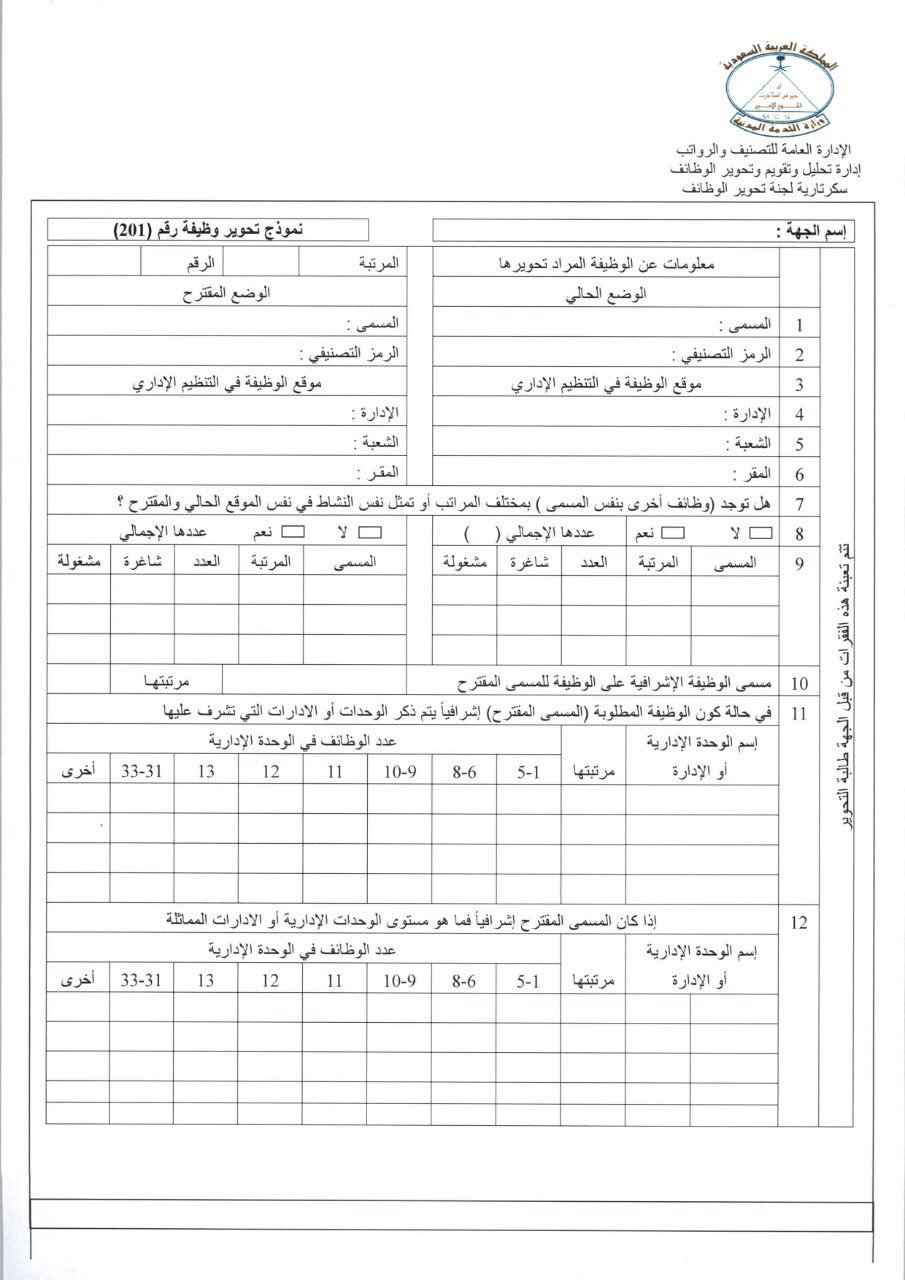 المملكة العربية السعودية
M C S
وزارة الخدمة المدنية
الإدارة العامة للتصنيف والرواتب
إدارة تحليل وتقويم وتحوير الوظائف
سكرتارية لجنة تحوير الوظائف
إسم الجهة :
نموذج تحوير وظيفة رقم (201)
معلومات عن الوظيفة المراد تحويرها المرتبة الرقم
الوضع الحالي الوضع المقترح
1 المسمى : المسمى :
2 الرمز التصنيفي : الرمز التصنيفي :
3 موقع الوظيفة في التنظيم الإداري موقع الوظيفة في التنظيم الإداري
4 الإدارة : الإدارة :
5 الشعبة : الشعبة :
6 المقر : المقـر :
7 هل توجد (وظائف أخرى بنفس المسمى ) بمختلف المراتب أو تمثل نفس النشاط في نفس الموقع الحالي والمقترح ؟
8 لا نعم عددها الإجمالي ( ) لا نعم عددها الإجمالي
9 المسمى المرتبة العدد شاغرة مشغولة المسمى المرتبة العدد شاغرة مشغولة
10 مسمى الوظيفة الإشرافية على الوظيفة للمسمى المقترح مرتبتهـا
11 في حالة كون الوظيفة المطلوبة (المسمى المقترح) إشرافياً يتم ذكر الوحدات أو الادارات التي تشرف عليها
إسم الوحدة الإدارية عدد الوظائف في الوحدة الإدارية
أو الإدارة مرتبتها 5-1 8-6 10-9 11 12 13 33-31 أخرى
12 إذا كان المسمى المقترح إشرافياً فما هو مستوى الوحدات الإدارية أو الادارات المماثلة
إسم الوحدة الإدارية عدد الوظائف في الوحدة الإدارية
أو الإدارة مرتبتها 5-1 8-6 10-9 11 12 13 33-31 أخرى
تتم تعبئة هذه الفقرات من قبل الجهة طالبة التحوير